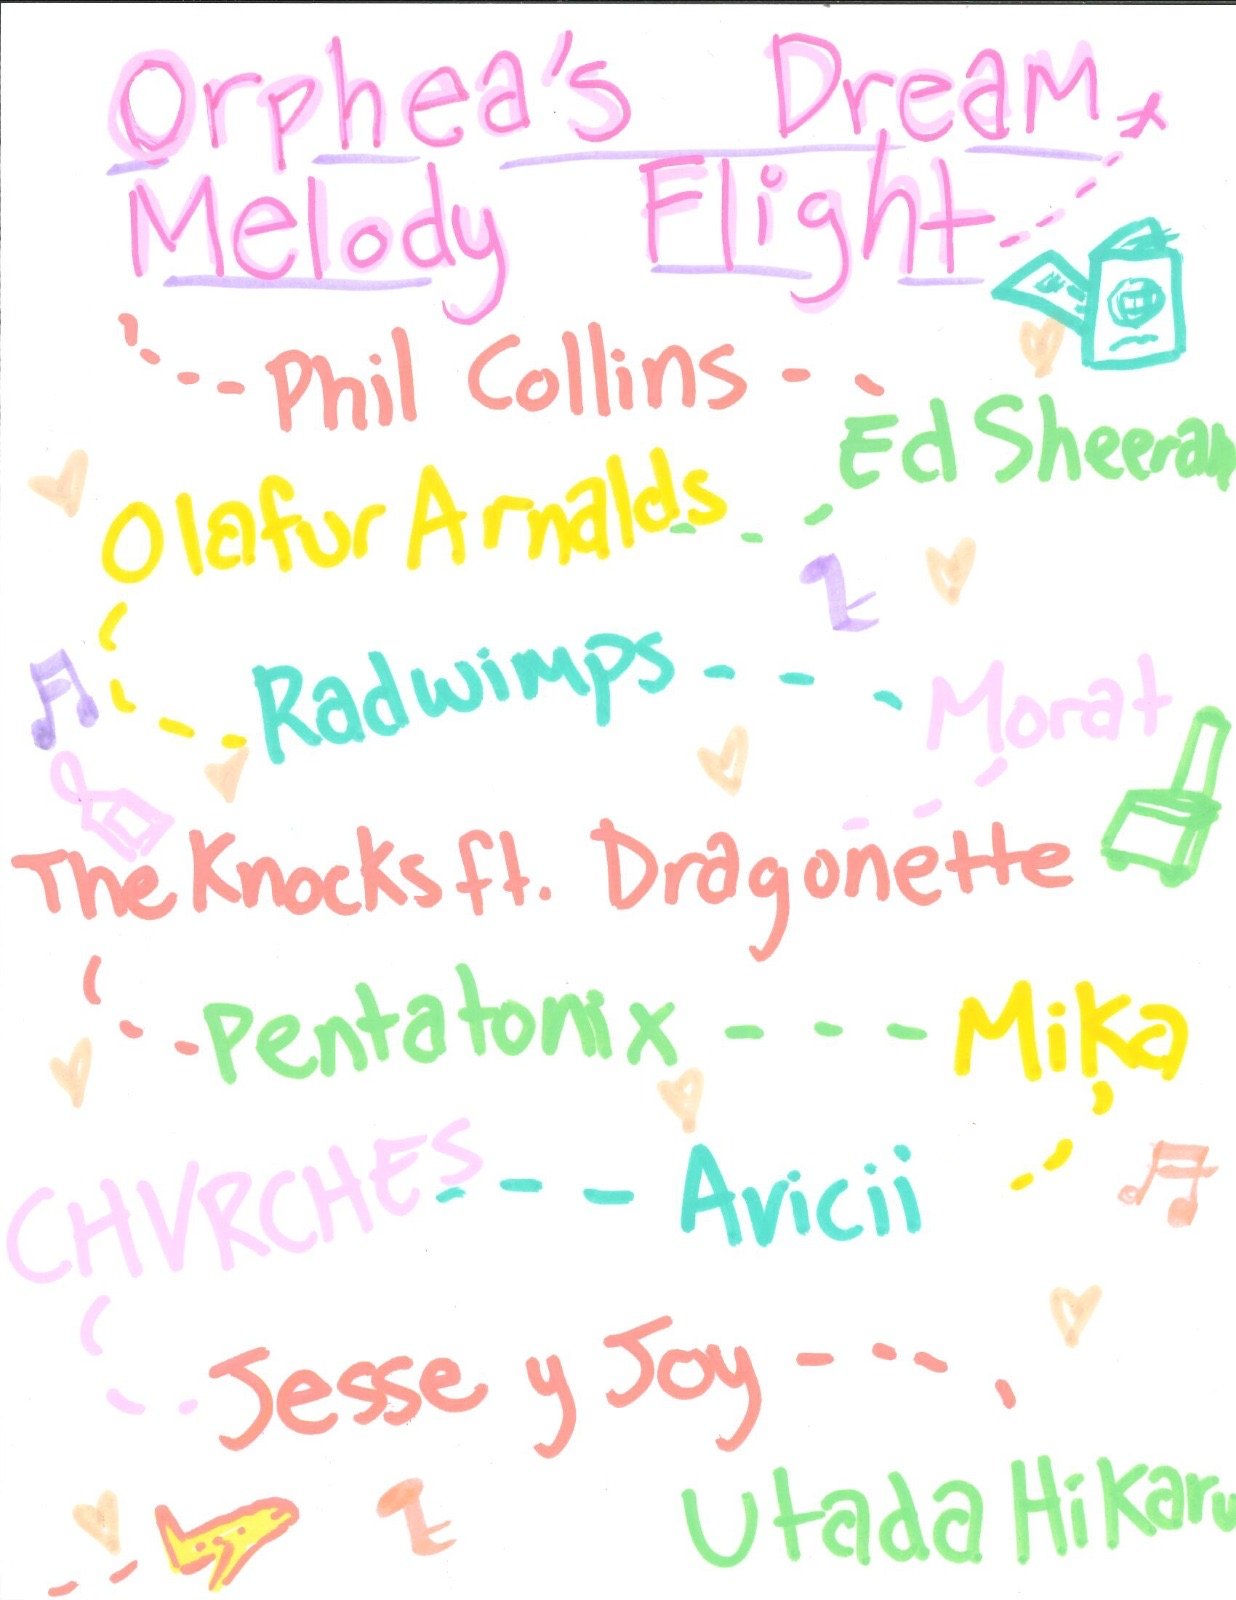 Orphea's Dream
Melody Flight
Phil Collins
Ed Sheeran
Olafur Arnalds
Radwimps
Morat
The Knocks ft. Dragonette
Pentatonix
Mika
CHVRCHES
Avicii
Jesse y Joy
Utada Hikaru